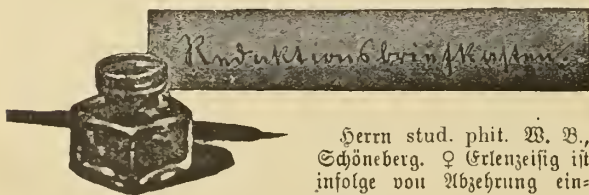 Redaktionsbriefkasten.
Herrn stud. phil. W. B.,
Schöneberg. ♀ Erlenzeisig ist
infolge von Abzehrung ein=